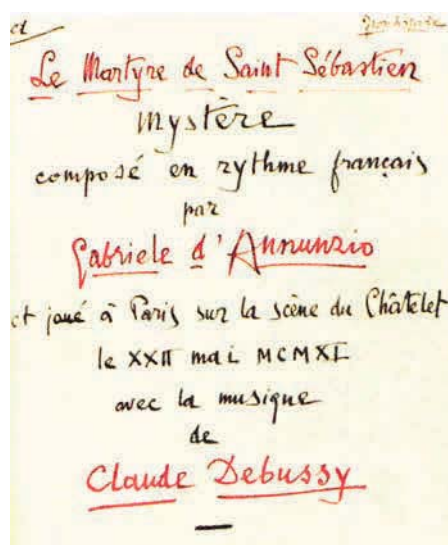 et
Le Martyre de Saint Sébastien
mystère
composé en rythme français
par
Gabriele d'Annunzio
et joué à Paris sur la scène du Châtelet
le XXII mai MCMXI
avec la musique
de
Claude Debussy